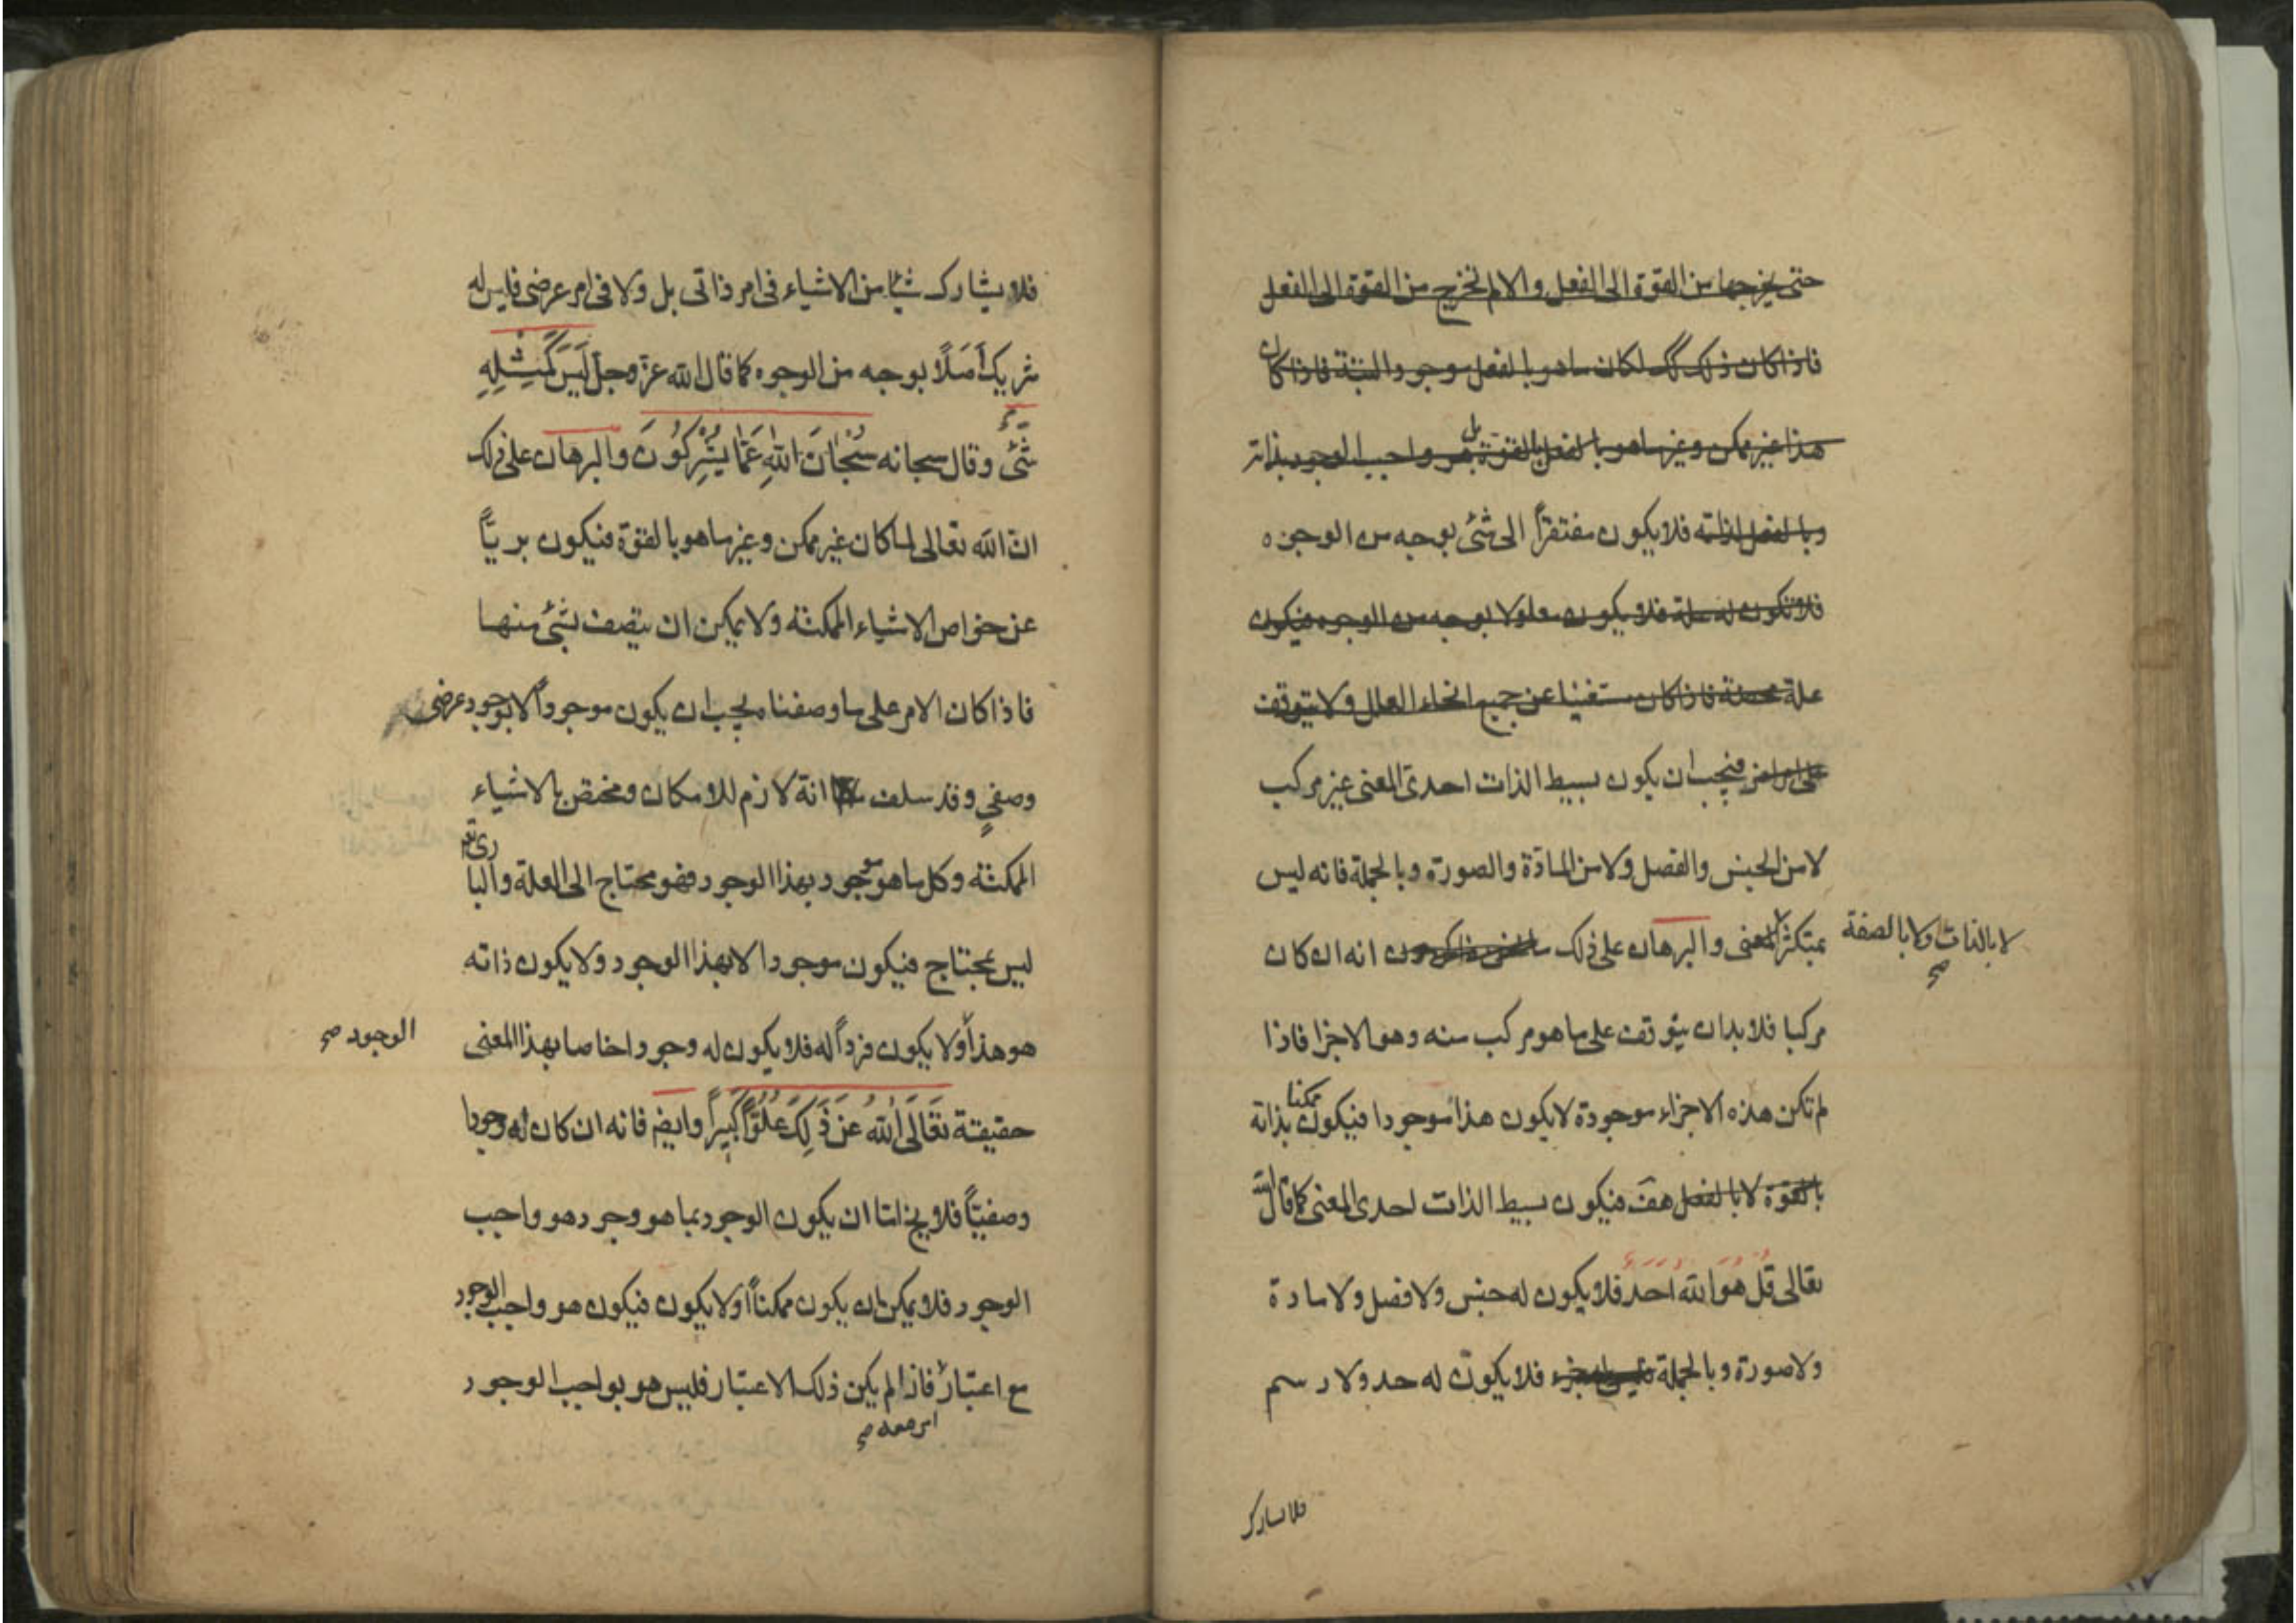 حتى يخرجها من القوة الى الفعل والا لم تخرج من القوة الى الفعل
فاذا كان ذلك كك لكان ما هو بالفعل موجودا البتة فاذا كان
هذا غير ممكن وغير ما هو بالفعل بالقوة بل هو واجب الوجود بذاته
وبالفعل لذاته فلا يكون مفتقراً الى شئ بوجه من الوجوه
فلا تكون له علة فلا يكون معلولا بوجه من الوجوه فيكون
علة محضة فاذا كان مستغنيا عن جميع انحاء العلل ولا يتوقف
على امر فيجب ان يكون بسيط الذات احدى المعنى غير مركب
لا من الجنس والفصل ولا من المادّة والصورة وبالجملة فانه ليس
بمتكثر المعنى والبرهان على ذلك انه ان كان
لا بالذات ولا بالصفة صح
مركبا فلا بد ان يتوقف على ما هو مركب منه وهو الاجزا فاذا
لم تكن هذه الاجزاء موجودة لا يكون هذا موجودا فيكون ممكنا بذاته
بالقوة لا بالفعل هف فيكون بسيط الذات احدى المعنى كما قال الله
تعالى قُل هُوَ الله احَد فلا يكون له جنس ولا فصل ولا مادة
ولا صورة وبالجملة فلا يكون له حد ولا رسم
فلا يشارك
فلا يشارك شيئا من الاشياء فى امر ذاتى بل ولا فى امر عرضى فليس له
شريك أصلًا بوجه من الوجوه كما قال الله عزّ وجلّ لَيسَ كَمِثلِهِ
شَئ وقال سبحانه سُبْحَانَ اللهِ عَمَّا يُشْرِكُونَ والبرهان على ذلك
ان الله تعالى لما كان غير ممكن وغير ما هو بالقوة فيكون بريّاً
عن خواص الاشياء الممكنة ولا يمكن ان يتصف بشئ منها
فاذا كان الامر على ما وصفنا يجب ان يكون موجوداً لا بوجود عرضى
وصفىٍ وقد سلف انه لازم للامكان ومختص بالاشياء
الممكنة وكل ما هو موجود بهذا الوجود فهو محتاج الى العلة والبارى تع
ليس بمحتاج فيكون موجودا لا بهذا الوجود ولا يكون ذاته
هو هذا ولا يكون فرداً له فلا يكون له وجودا خاصا بهذا المعنى
الوجود صح
حقيقة تَعَالَى اللهُ عَن ذَلِكَ عُلُوّاً كَبيراً وايضا فانه ان كان له وجودا
وصفيّاً فلا يخ اما ان يكون الوجود بما هو وجود هو واجب
الوجود فلا يمكن ان يكون ممكناً أو لا يكون فيكون هو واجب الوجود
مع اعتبار فاذا لم يكن ذلك الاعتبار فليس هو بواجب الوجود
امر معه صح